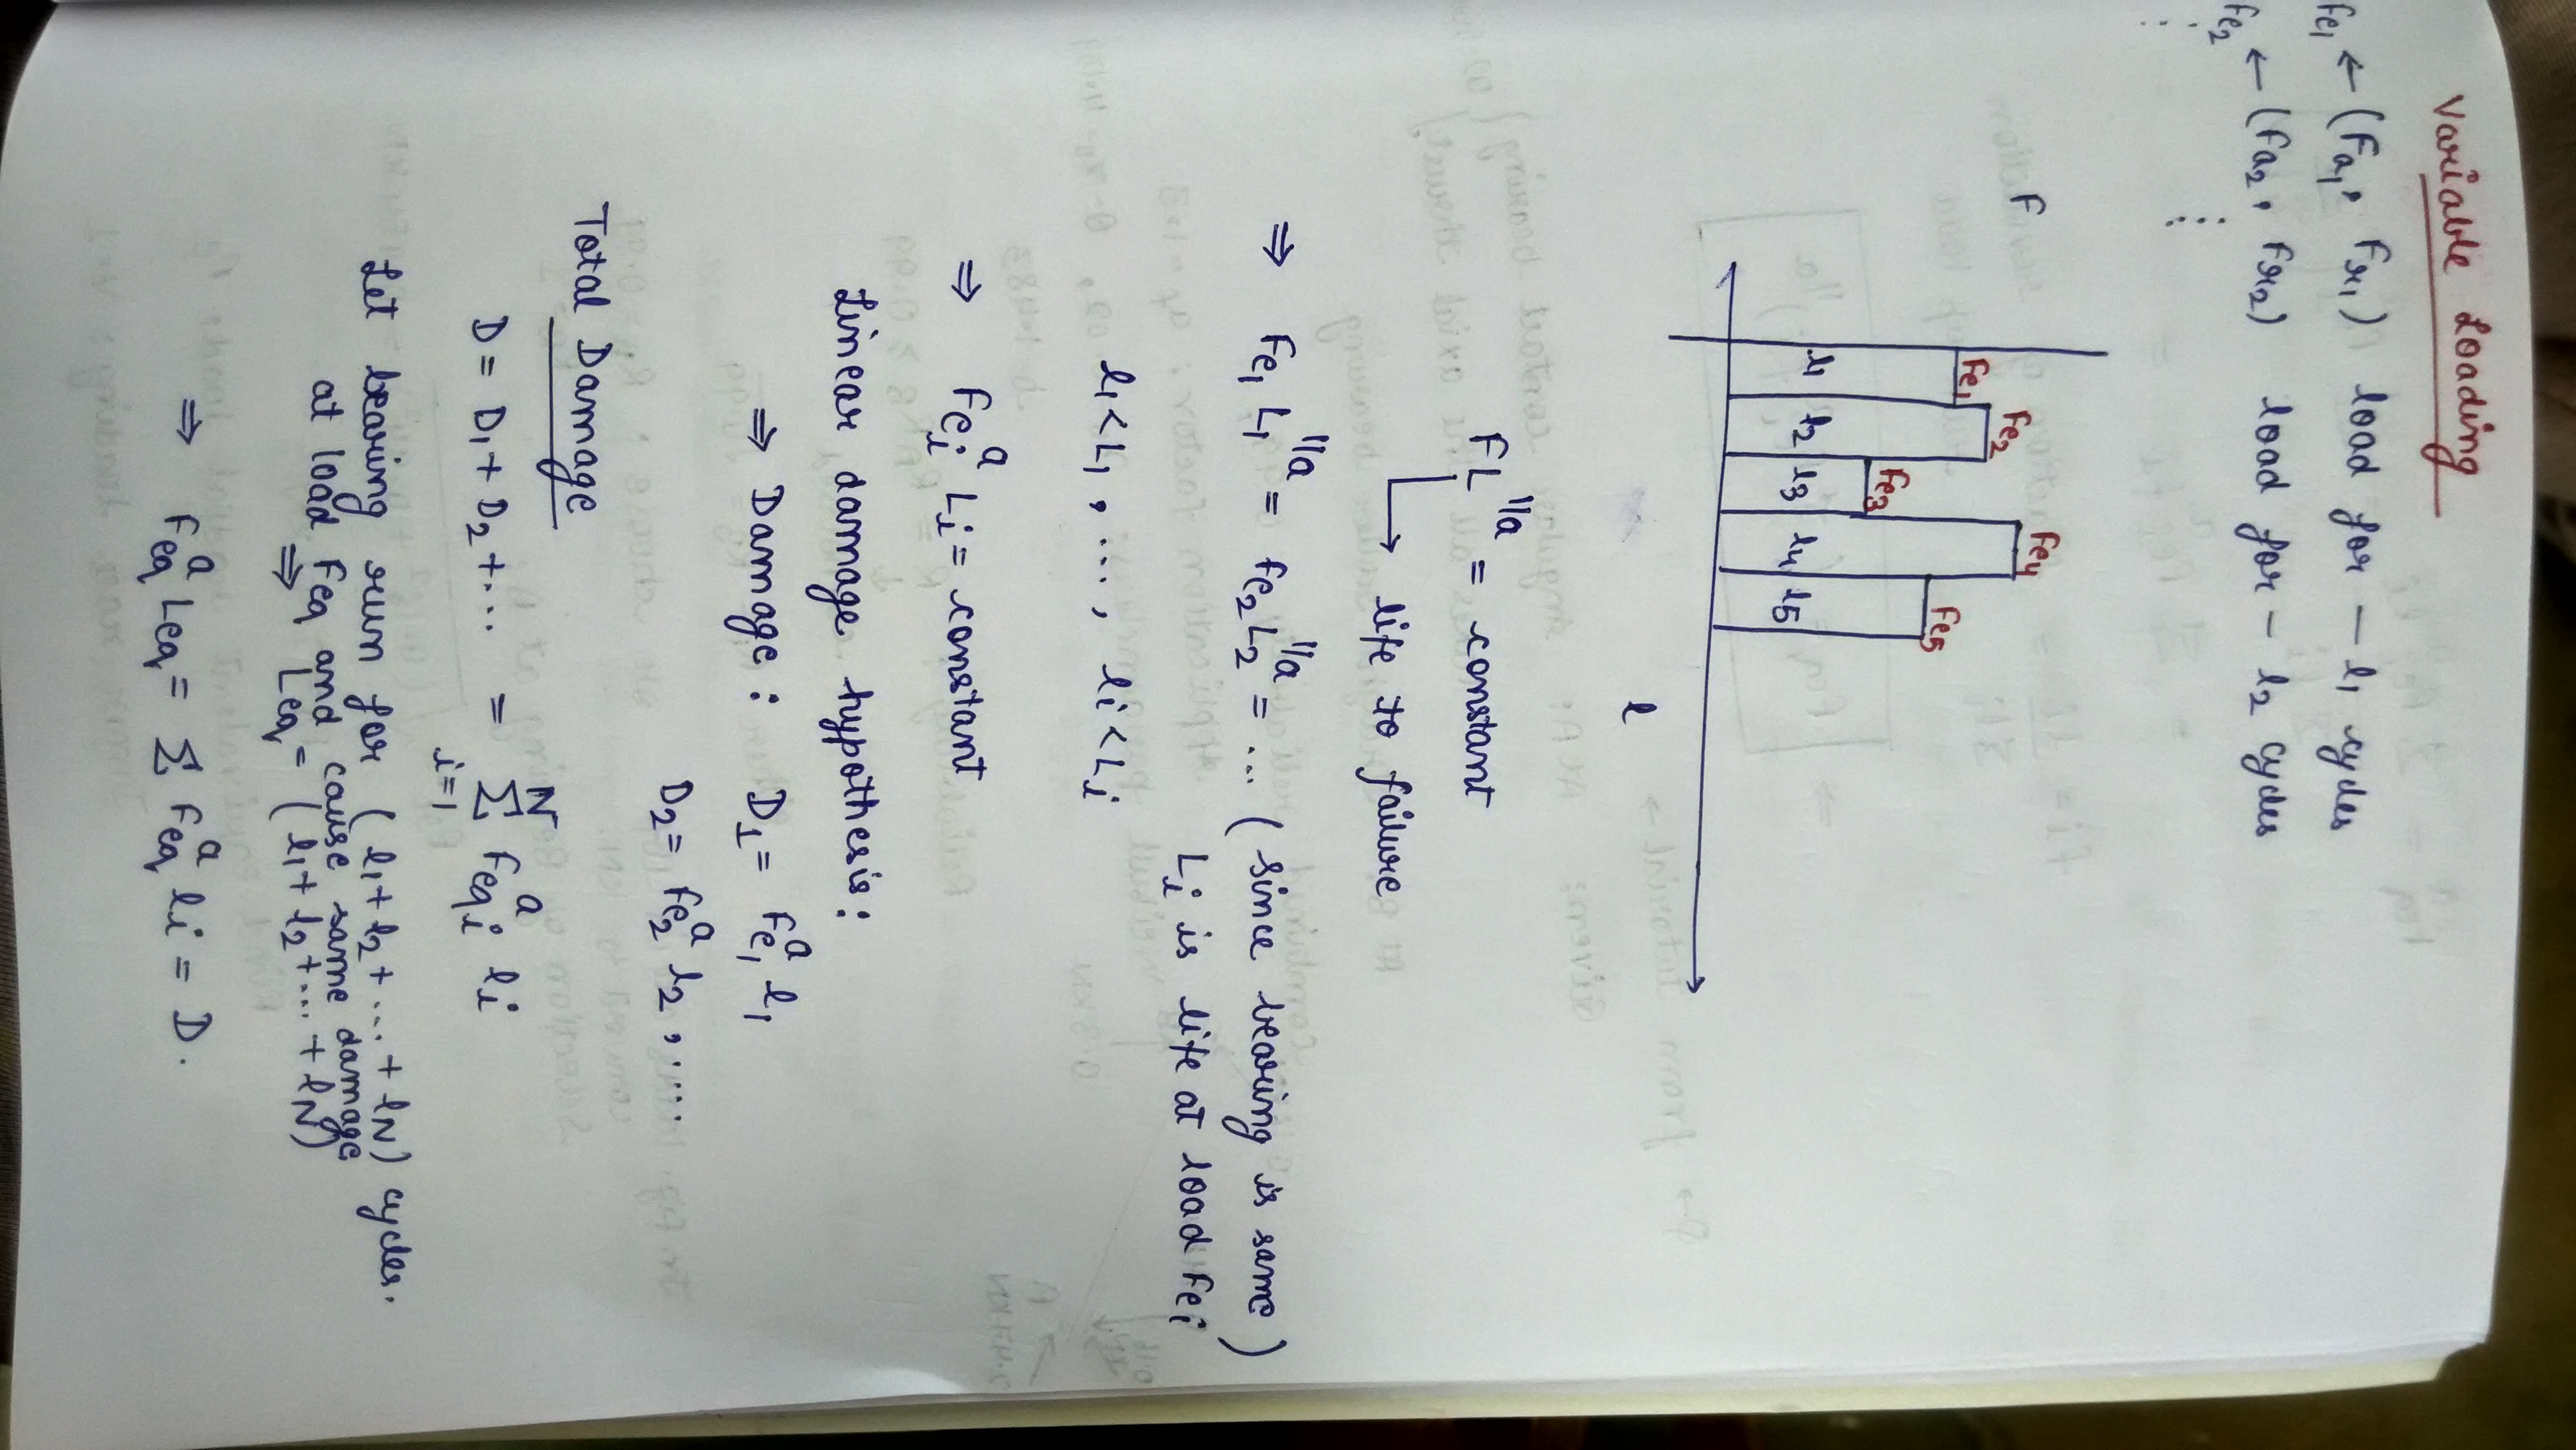 Variable Loading
Fe₁ ← (Fa₁, Fr₁) load for — l₁ cycles
Fe₂ ← (Fa₂, Fr₂) load for - l₂ cycles
F
Fe₁ Fe₂ Fe₃ Fe₄ Fe₅
l₁ l₂ l₃ l₄ l₅
l
FL^(1/a) = constant
life to failure
⇒ Fe₁ L₁^(1/a) = Fe₂ L₂^(1/a) = ... (since bearing is same)
Lᵢ is life at load Feᵢ
l₁ < L₁, ..., lᵢ < Lᵢ
⇒ Feᵢ^a Lᵢ = constant
Linear damage hypothesis:
⇒ Damage: D₁ = Fe₁^a l₁
D₂ = Fe₂^a l₂, ....
Total Damage
D = D₁ + D₂ + ... = Σ_{i=1}^{N} Feqᵢ^a lᵢ
Let bearing run for (l₁ + l₂ + ... + lN) cycles.
at load Feq and cause same damage
⇒ Leq = (l₁ + l₂ + ... + lN)
⇒ Feq^a Leq = Σ Feq^a lᵢ = D.